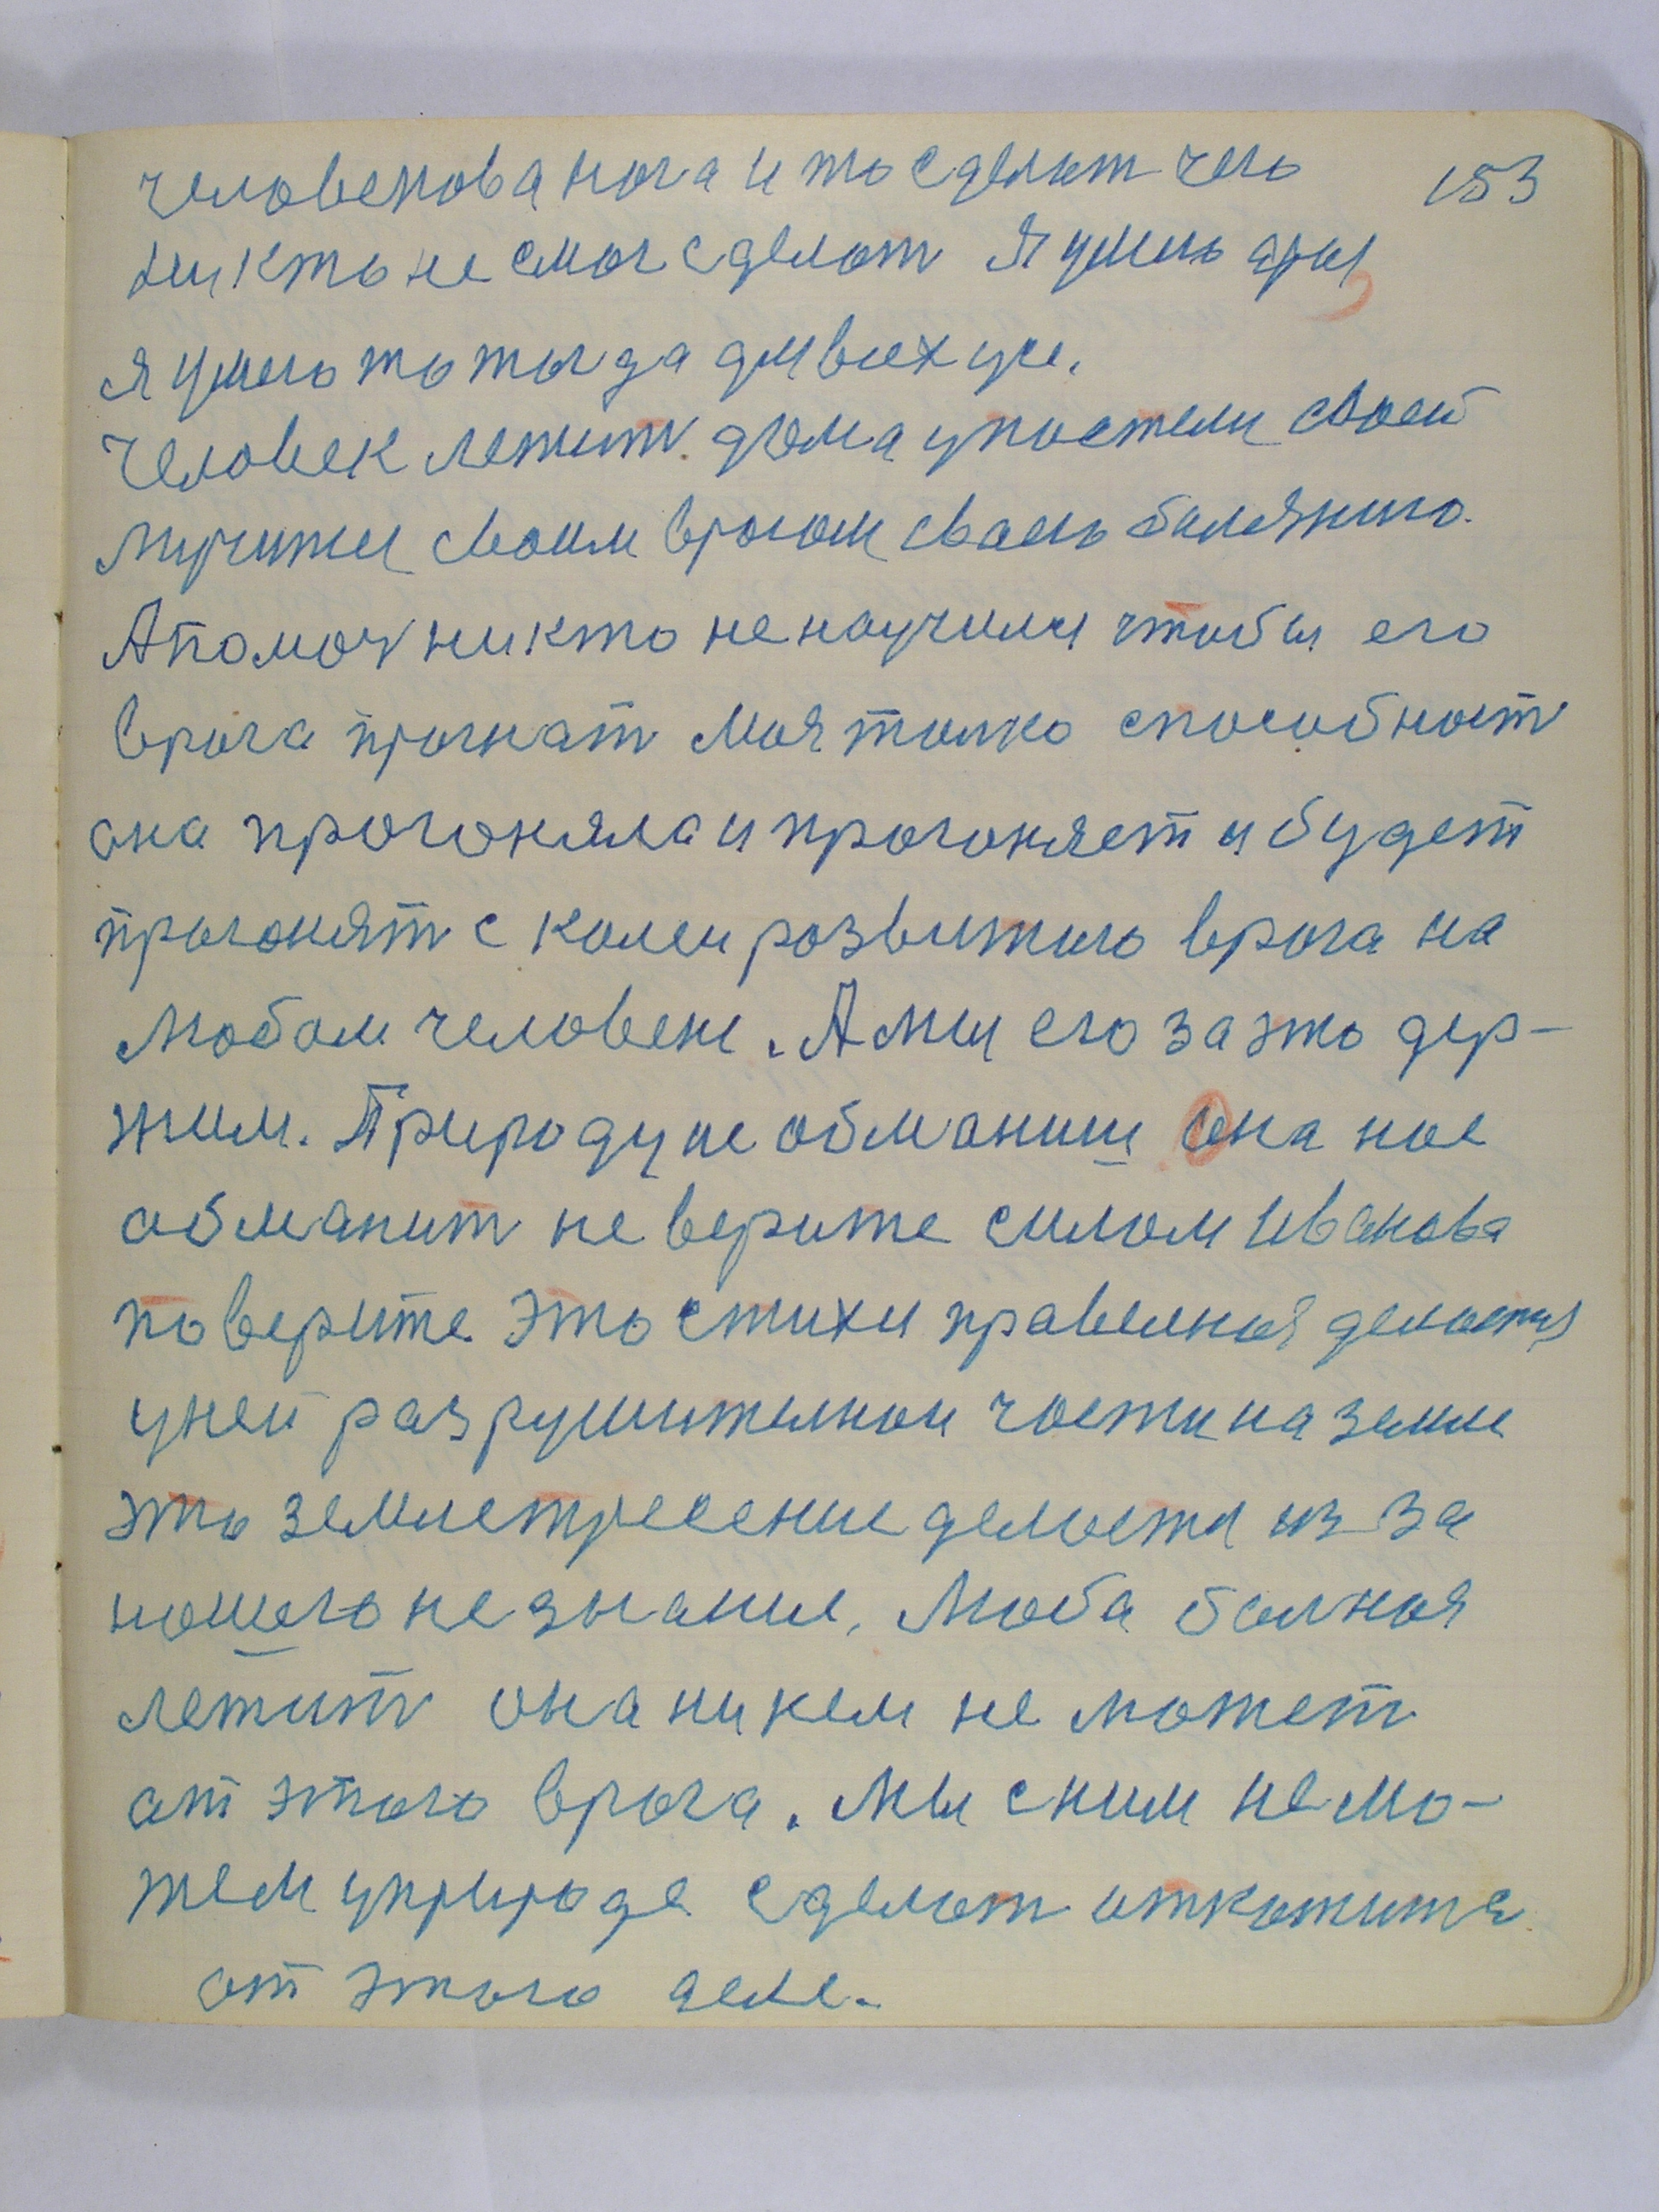 человекова нога и то сделат чего 153
никто не смог сделат Я умею
я умею то тогда для всех уже.
Человек лежит дома упостели своей
мучится своим врогом сваею балезнию.
А помоч никто не научился чтобы его
врога прогнат Моя толко способност
она прогоняла и прогоняет и будет
прогонят с колеи розвитого врога на
Любом человеке. А мы его за это дер-
жим. Природу не обманиш она нас
обманит не верите силом Иванова
поверите это стихия правелноя делается
уней разрушителнои части на земле
это землетресение делается из за
нашего не знание. Люба болноя
лежит она никем не может
от этого врога. Мы с ним не мо-
жем уприроде сделат откотится
от этого деле.